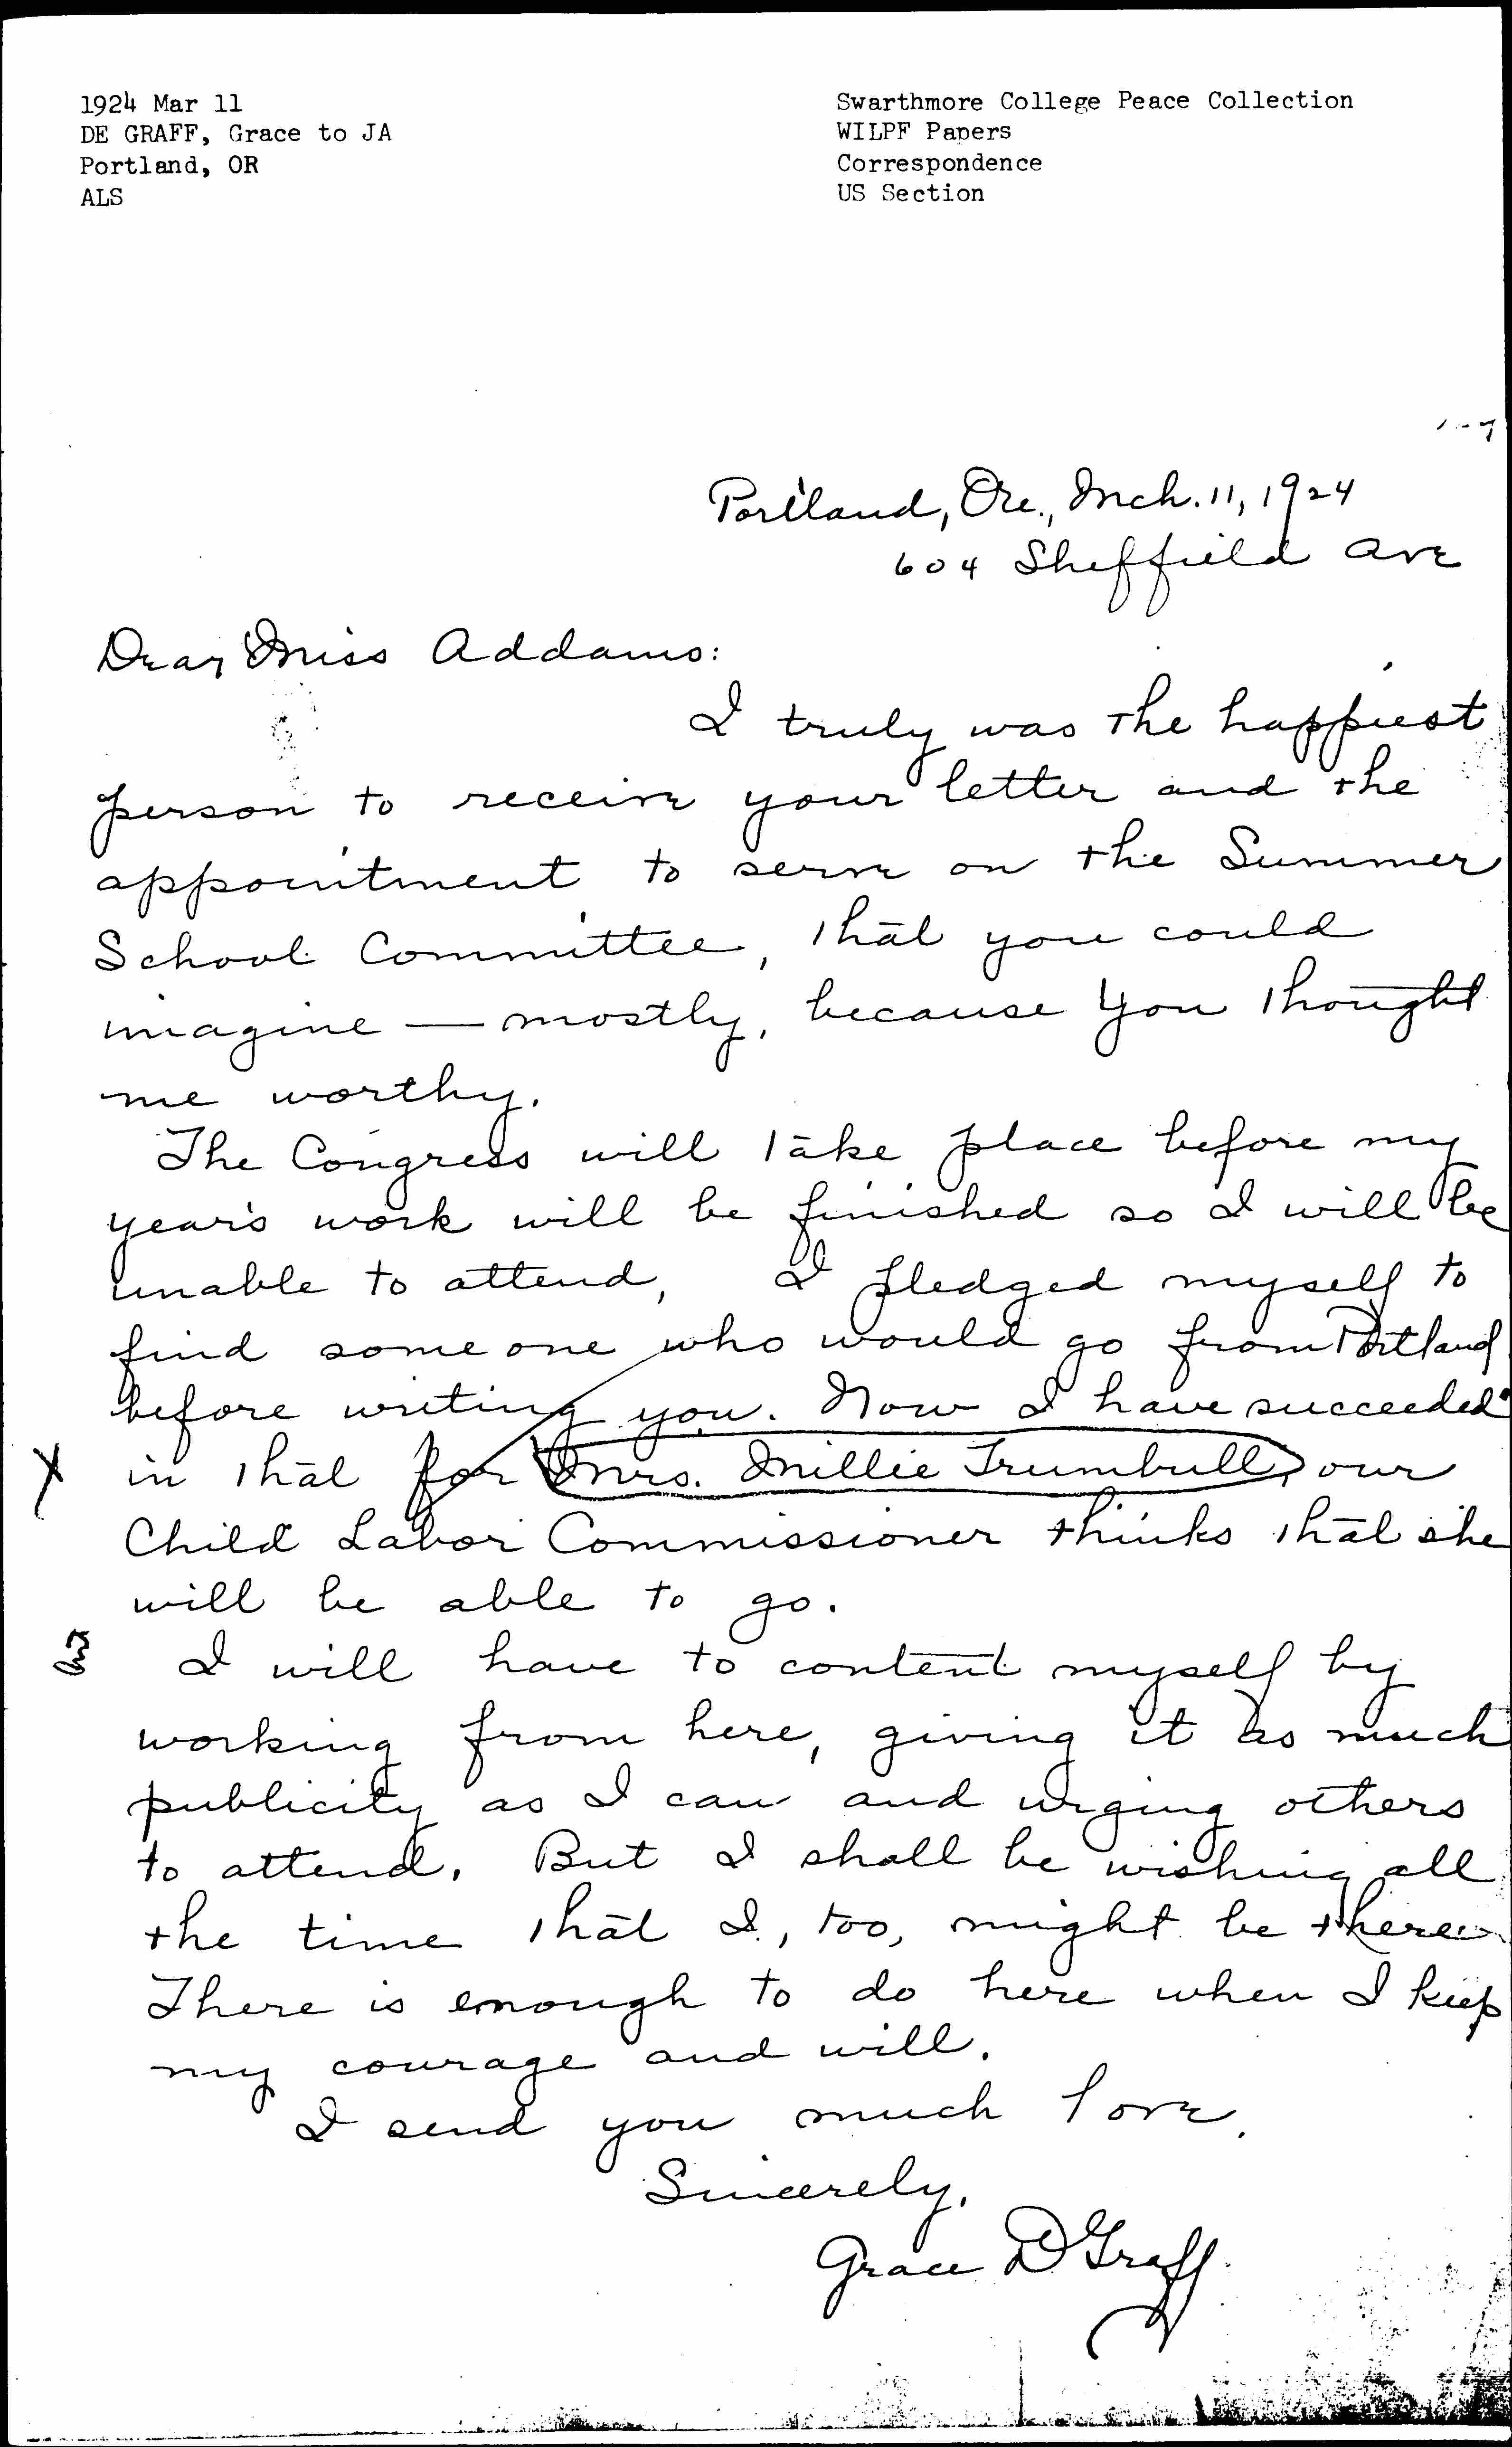 1924 Mar 11
DE GRAFF, Grace to JA
Portland, OR
ALS
Swarthmore College Peace Collection
WILPF Papers
Correspondence
US Section
Portland, Ore., Mch. 11, 1924
604 Sheffield Ave
Dear Miss Addams:
I truly was the happiest
person to receive your letter and the
appointment to serve on the Summer
School Committee, that you could
imagine — mostly, because you thought
me worthy.
The Congress will take place before my
year's work will be finished so I will be
unable to attend, I pledged myself to
find some one who would go from Portland
before writing you. Now I have succeeded
X in that for Mrs. Millie Trumbull, our
Child Labor Commissioner thinks that she
will be able to go.
I will have to content myself by
working from here, giving it as much
publicity as I can and urging others
to attend. But I shall be wishing all
the time that I, too, might be there.
There is enough to do here when I keep
my courage and will.
I send you much love.
Sincerely,
Grace DeGraff